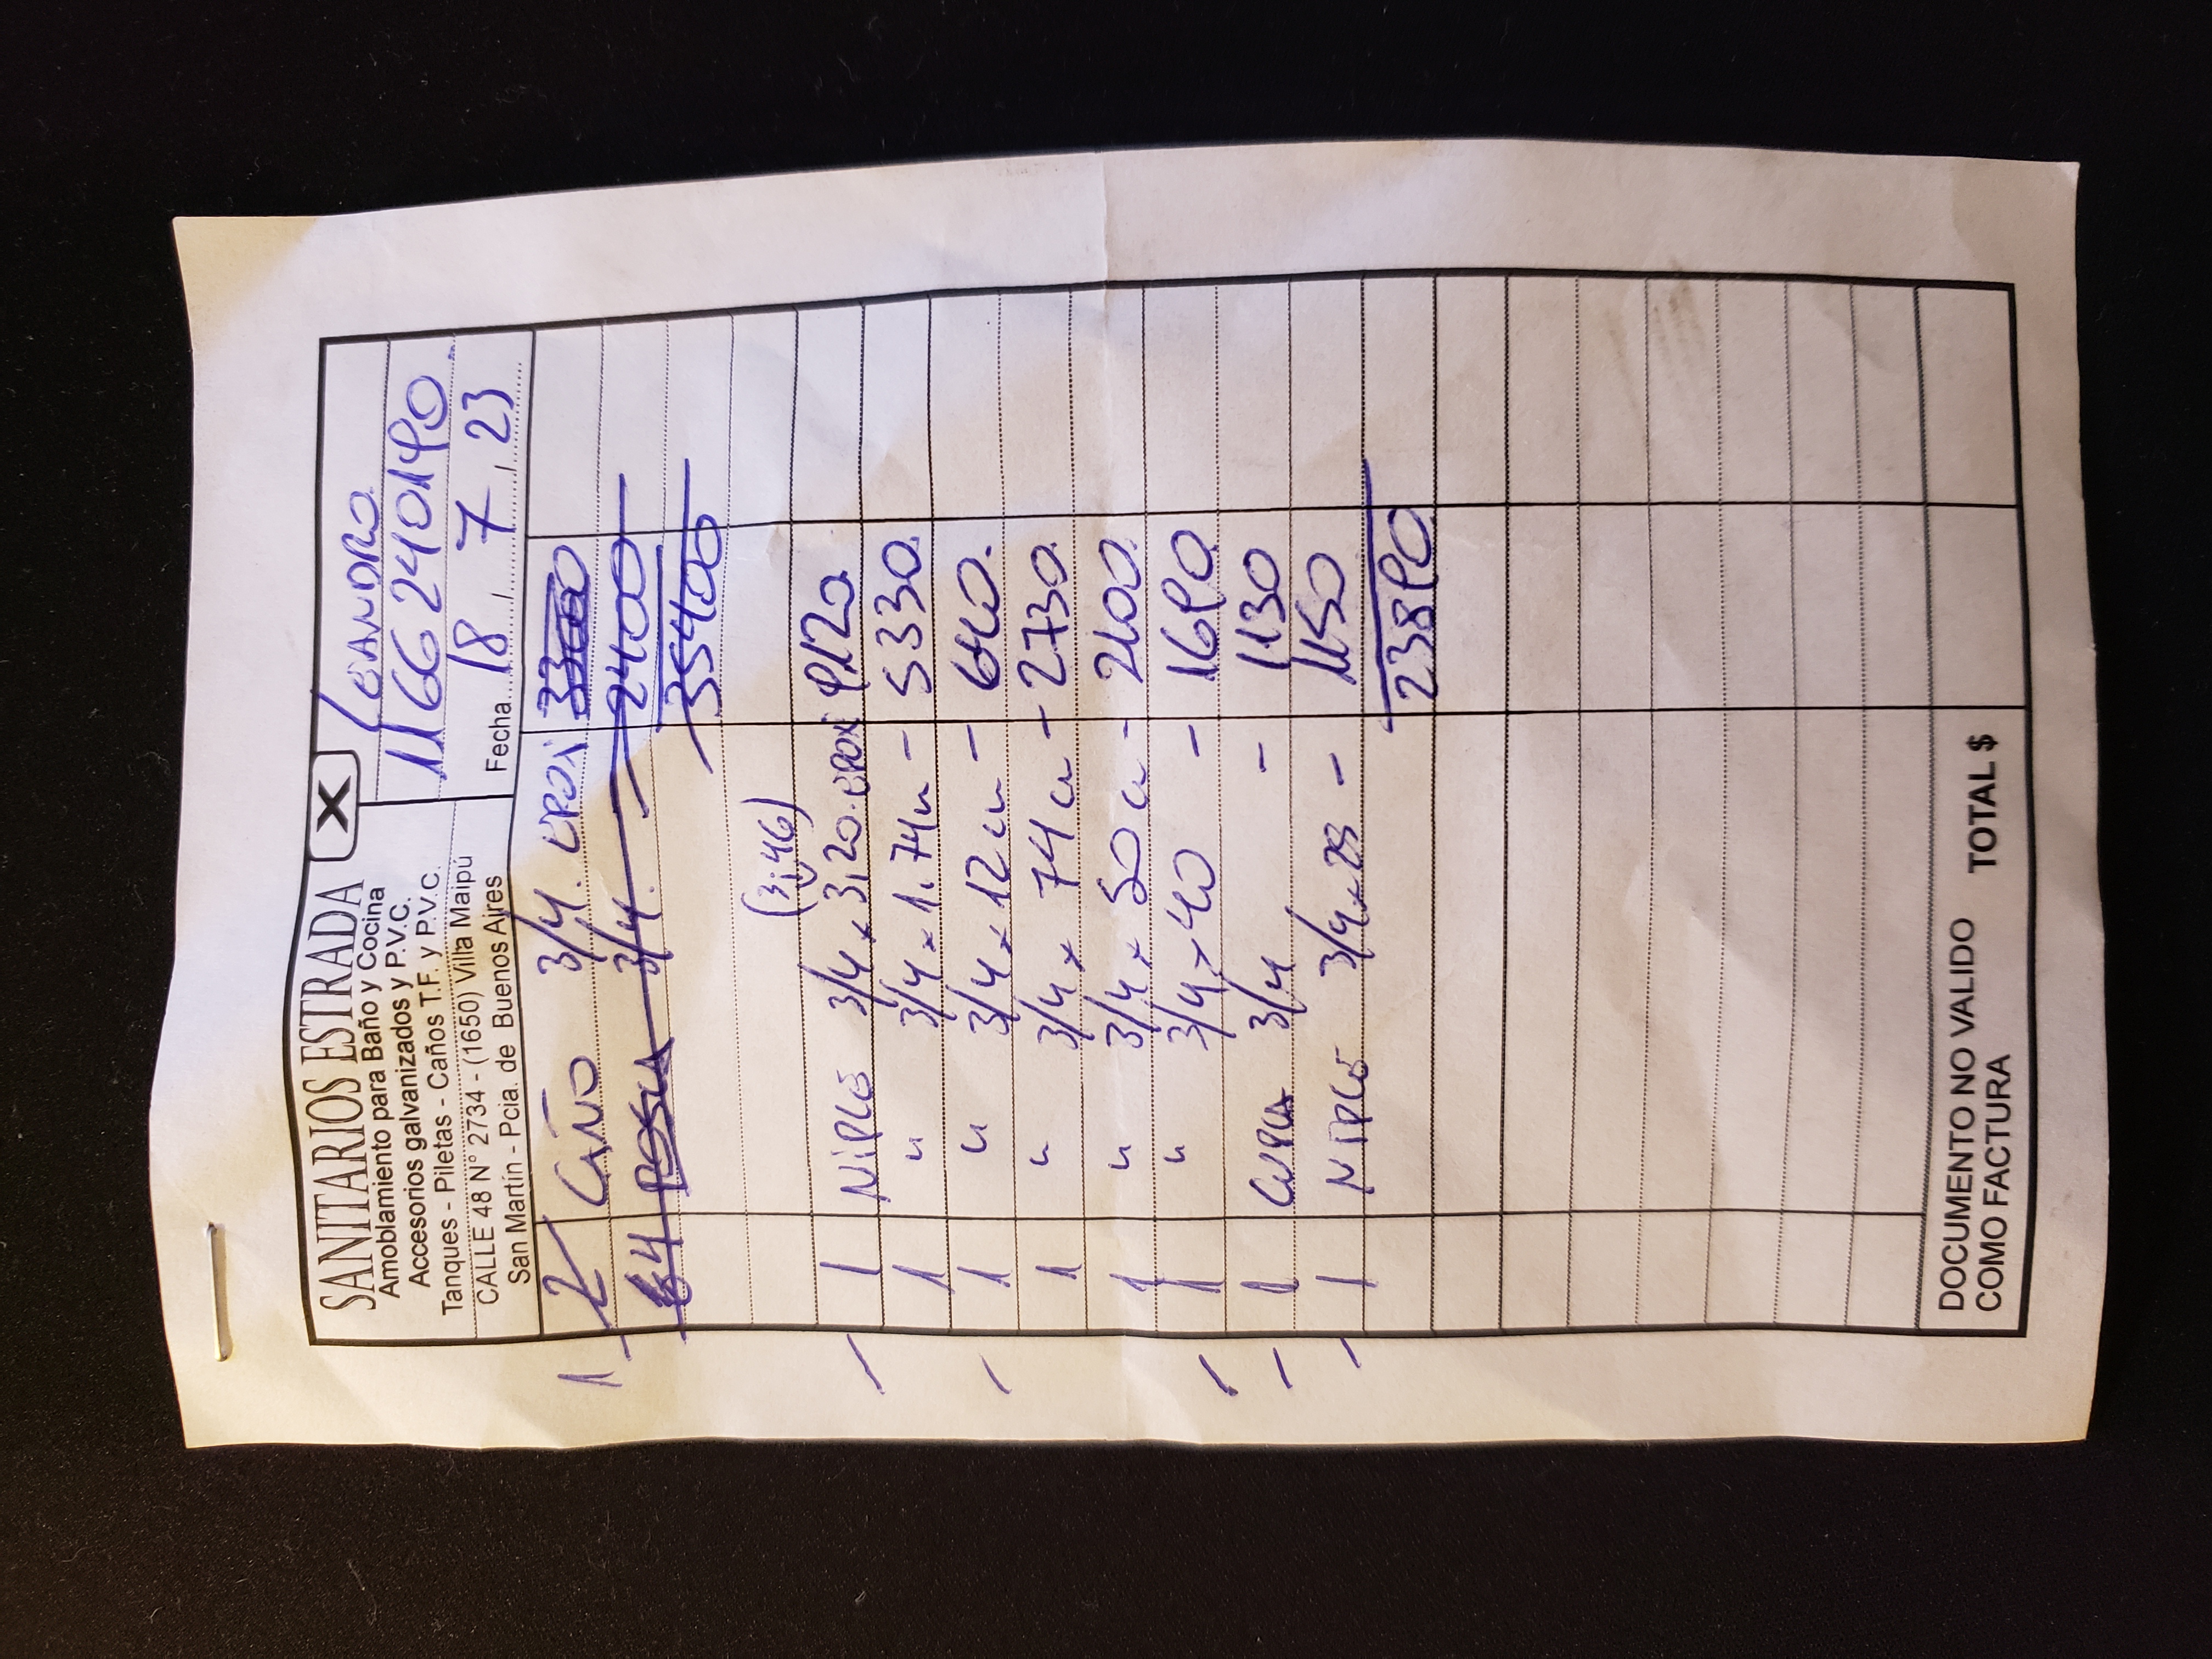 SANITARIOS ESTRADA
Amoblamiento para Baño y Cocina
Accesorios galvanizados y P.V.C.
Tanques - Piletas - Caños T.F. y P.V.C.
CALLE 48 N° 2734 - (1650) Villa Maipú
San Martín - Pcia. de Buenos Aires
X
LEANDRO
1166240190
Fecha 18 / 7 / 23
1 2 CAÑO 3/4. EPOXI 33000
64 ROSCA 3/4. 2400
35400
(3,46)
1 NIPLE 3/4 x 3,20 EPOXI 9120
1 " 3/4 x 1.74 - 5330.
1 " 3/4 x 12 cm - 640.
1 " 3/4 x 74 c - 2730.
1 " 3/4 x 50 c - 2100.
1 " 3/4 x 40 - 1690.
1 CUPLA 3/4 - 1130
1 NIPLE 3/4 x 28 - 1150
23890
DOCUMENTO NO VALIDO
COMO FACTURA
TOTAL $